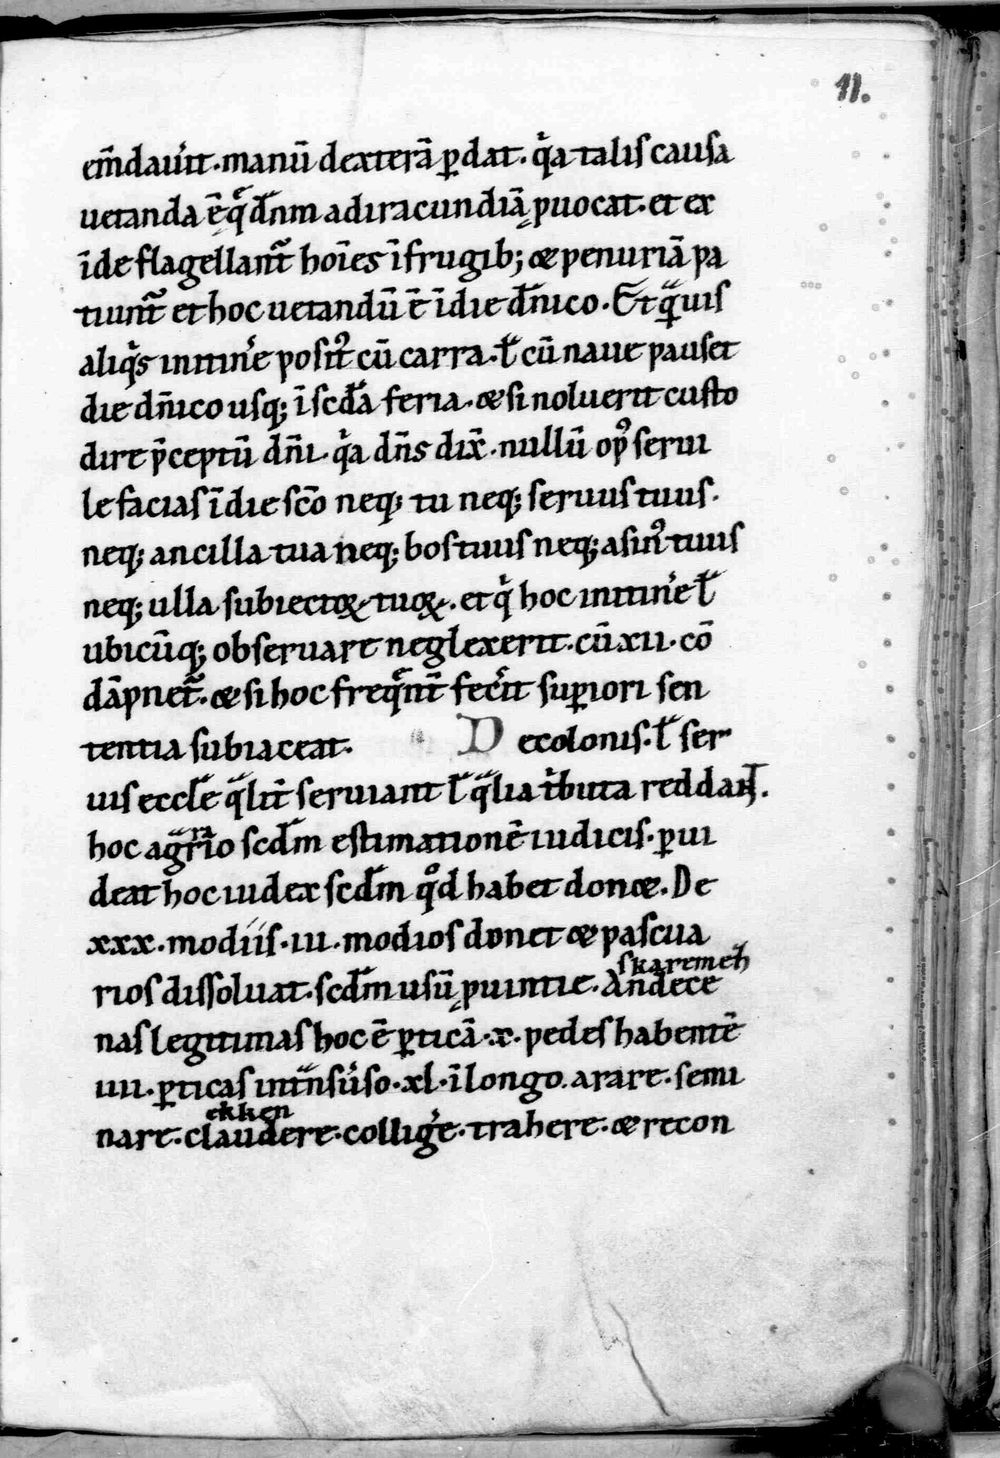 11.
em̄dau̓it. manū dexterā ꝑdat. qͥa talis causa
uetanda ē qͥ dn̄m ad iracundiā ꝓuocat. et ex
īde flagellant̄ hoīes ī frugib; & penuriā pa
tiunt̄ et hoc uetandū ē ī die dn̄ico. Et qᷓuis
aliqͥs in itin̓e posit᷒ cū carra. ł cū naue pauset
die dn̄ico usq; ī scd̄a feria. & si noluerit custo
dire p̄ceptū dn̄i. qͥa dn̄s dix̄. nullū op᷒ serui
le facias ī die sc̄o neq; tu neq; seruus tuus.
neq; ancilla tua neq; bos tuus neq; asin᷒ tuus
neq; ulla subiectoꝝ tuoꝝ. et qͥ hoc in itin̓e ł
ubicūq; obseruare neglexerit. cū xii. cō
dāpnet̄. & si hoc freqͤnt̄ fec̓it suꝑiori sen
tentia subiaceat. De colonis. ł ser
uis eccłe qᷓlit̓ seruiant ł qᷓlia tͥbuta reddant.
hoc agrᷓrio scd̄m estimationē iudicis. ꝓui
deat hoc iudex scd̄m qͦd habet don&. De
xxx. modiis. iii. modios donet & pascua
rios dissoluat. scd̄m usū ꝓuintie. Andece
skaremeh̄
nas legitimas hoc ē ꝑticā. x. pedes habentē
iiii. ꝑticas in tᷓnsu̓so. xl. ī longo. arare. semi
ekken
nare. claudere. collig̓e. trahere. & recon